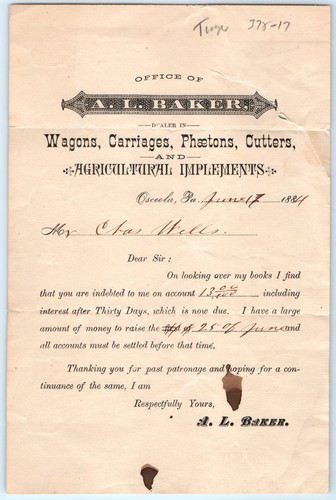 Tioga 378-17
OFFICE OF
A. L. BAKER,
DEALER IN
Wagons, Carriages, Phætons, Cutters,
AND
AGRICULTURAL IMPLEMENTS.
Osceola, Pa. June 17 1884
Mr Chas Wells.
Dear Sir:
On looking over my books I find
that you are indebted to me on account 13 00/100 including
interest after Thirty Days, which is now due. I have a large
amount of money to raise the 25 of June and
all accounts must be settled before that time.
Thanking you for past patronage and hoping for a con-
tinuance of the same, I am
Respectfully Yours,
A. L. BAKER.